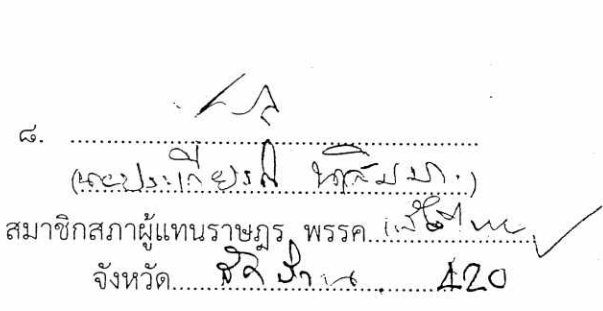 ๘. ..............................
(นายประเกียรติ นาสิมมา)
สมาชิกสภาผู้แทนราษฎร พรรค..เพื่อไทย
จังหวัด.................420